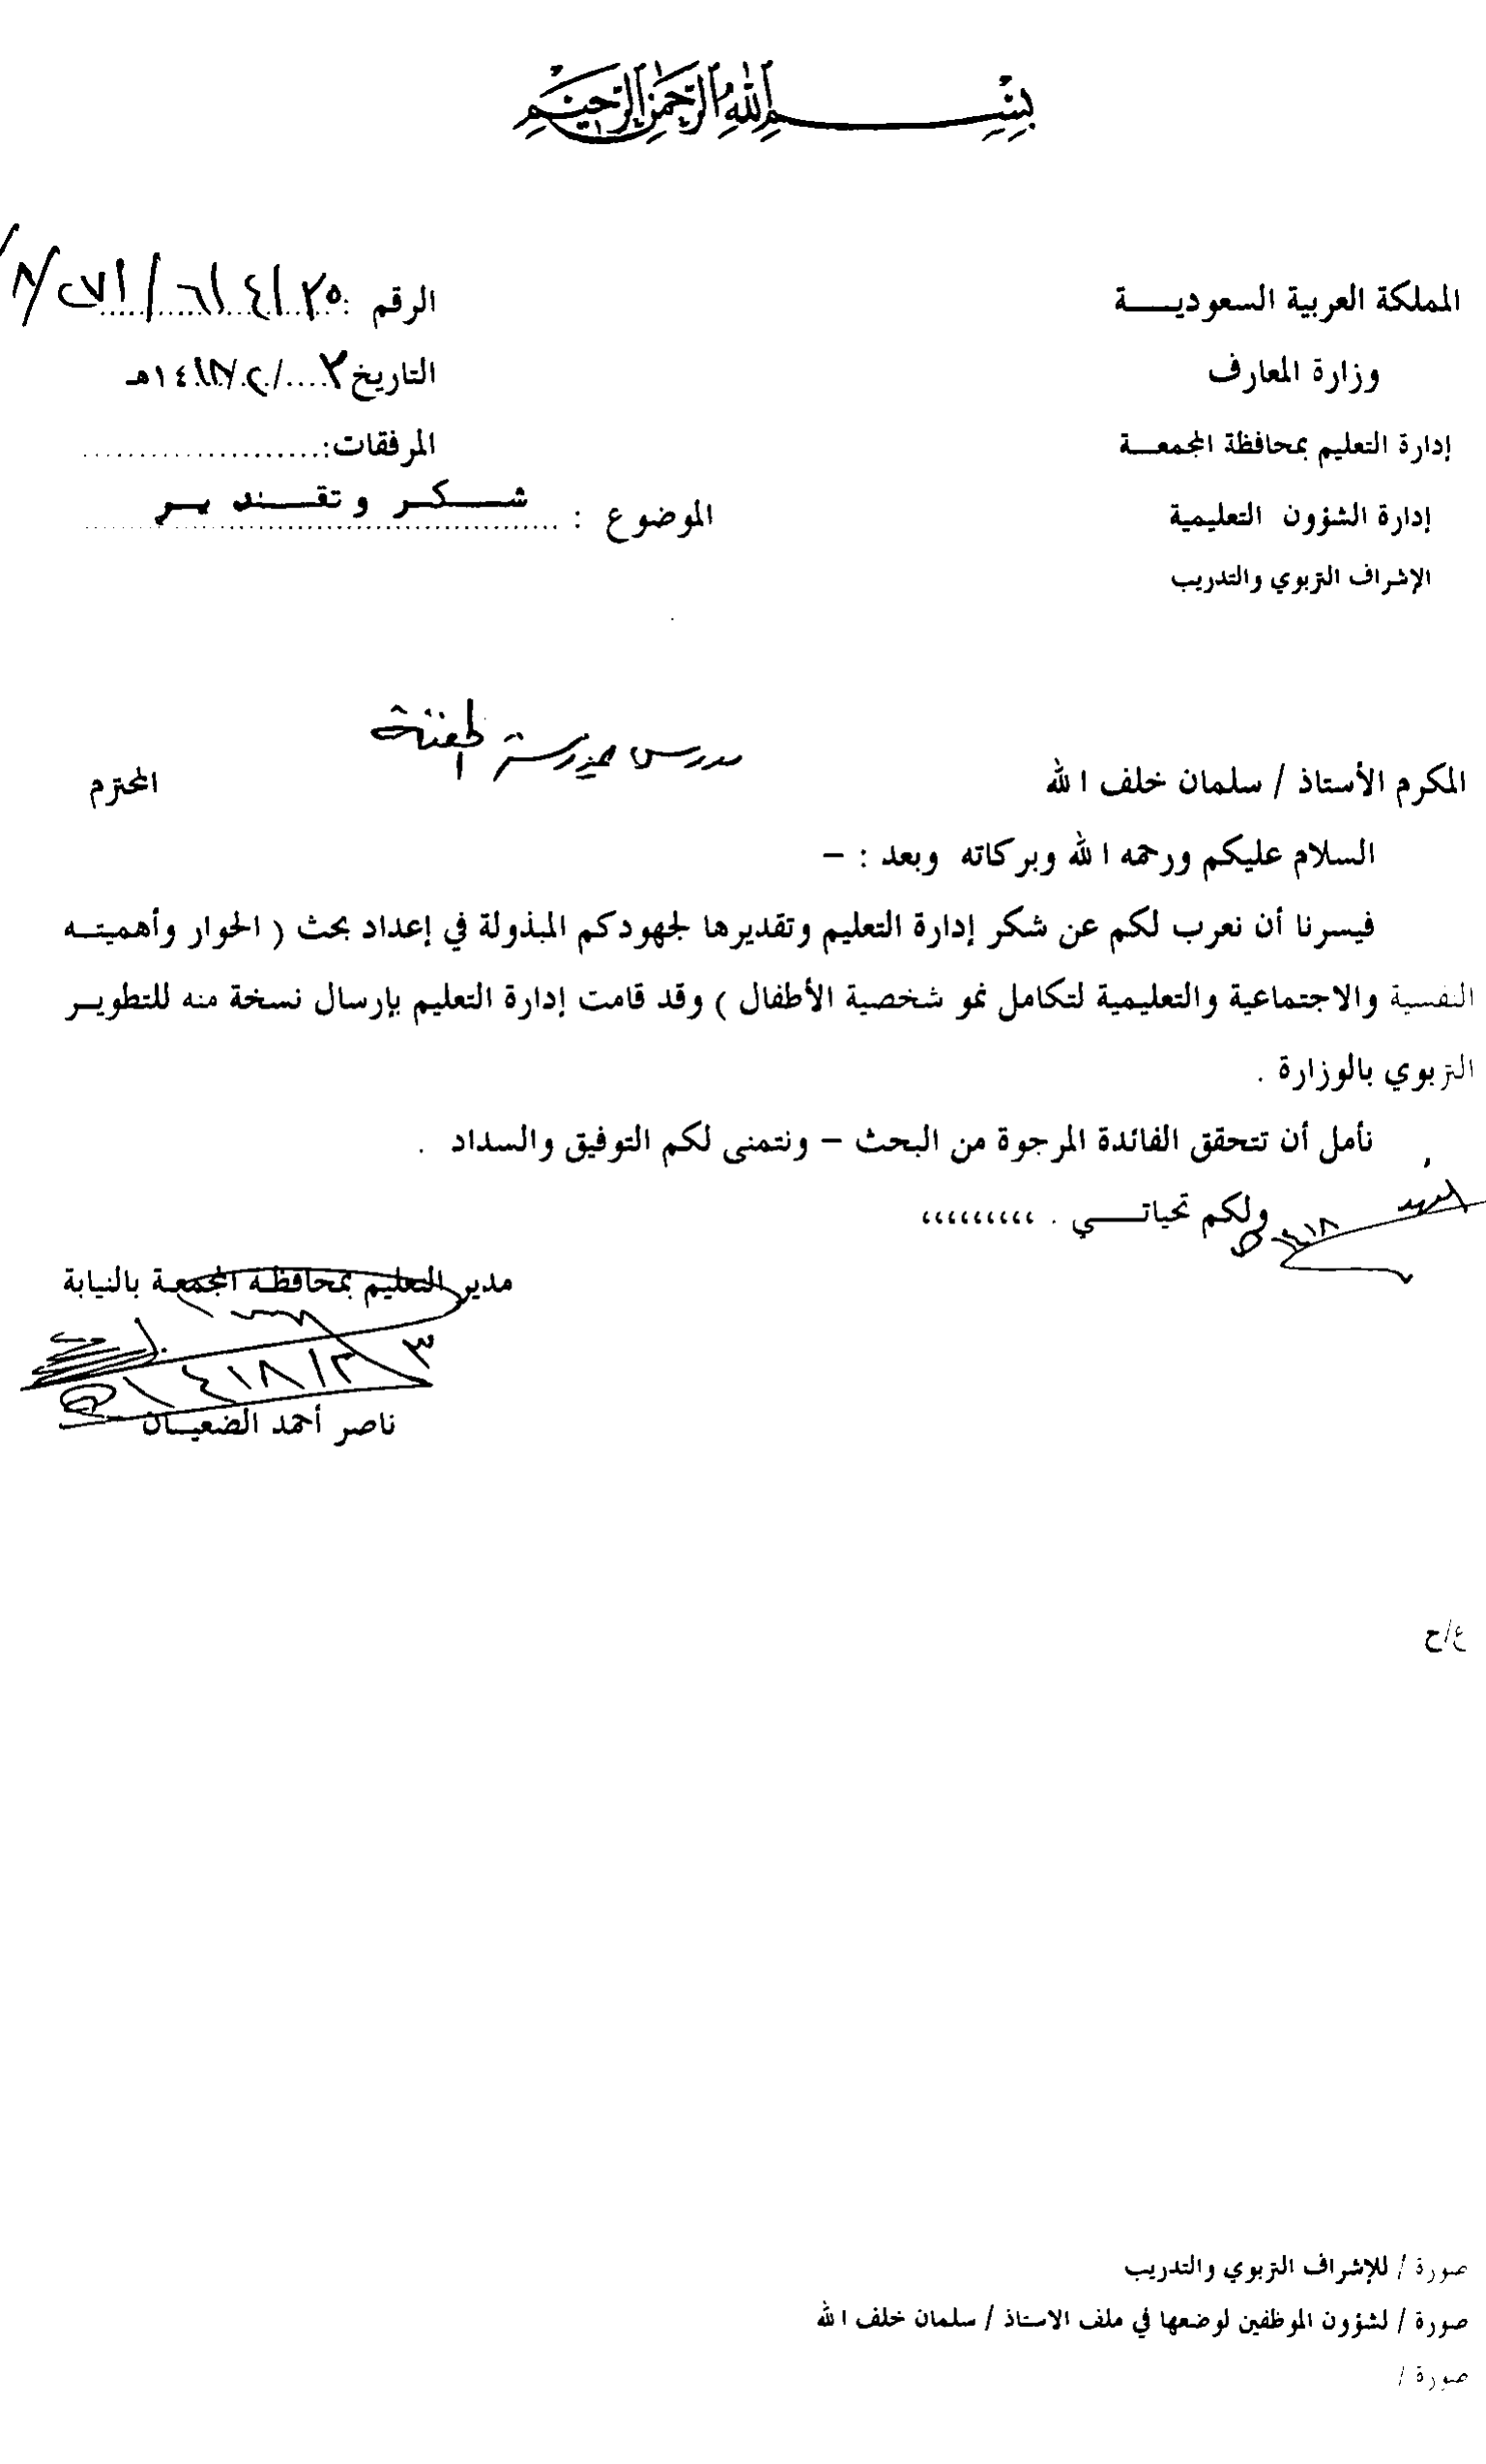 بسم الله الرحمن الرحيم
المملكة العربية السعوديـــة
وزارة المعارف
إدارة التعليم بمحافظة المجمعــة
إدارة الشؤون التعليمية
الإشراف التربوي والتدريب
الرقم :
التاريخ ٣..../٢/١٤١٨هـ
المرفقات:....................
الموضوع : شـــكــر و تقــديــر
المكرم الأستاذ / سلمان خلف الله مدرس المحترم
السلام عليكم ورحمه الله وبركاته وبعد : –
فيسرنا أن نعرب لكم عن شكر إدارة التعليم وتقديرها لجهودكم المبذولة في إعداد بحث ( الحوار وأهميتــه
النفسية والاجتماعية والتعليمية لتكامل نمو شخصية الأطفال ) وقد قامت إدارة التعليم بإرسال نسخة منه للتطويــر
التربوي بالوزارة .
نأمل أن تتحقق الفائدة المرجوة من البحث – ونتمنى لكم التوفيق والسداد .
ولكم تحياتـــي . ،،،،،،،،،
مدير التعليم بمحافظة المجمعة بالنيابة
١٤١٨/٢/٣
ناصر أحمد الضعيــان
ع/ح
صورة / للإشراف التربوي والتدريب
صورة / لشؤون الموظفين لوضعها في ملف الاستاذ / سلمان خلف الله
صورة /